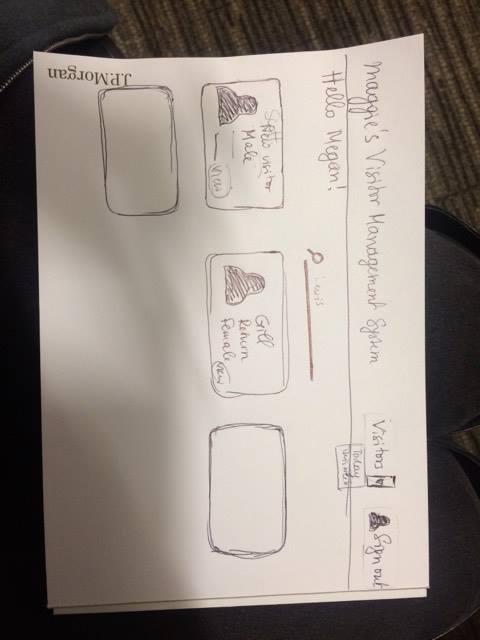 Maggie's Visitor Management System
Visitors
Sign out
Today
Hello Megan!
Lewis
New visitor
Male
View
Grill
Return
Female
View
J.P.Morgan